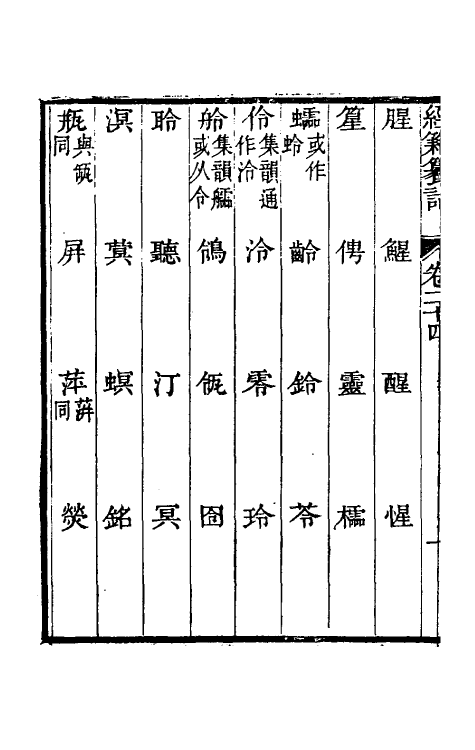 經籍籑詁 卷二十四 一
腥 鯹 醒 惺
篂 俜 靈 櫺
蠕或作蛉 齡 鈴 苓
伶集韻通作泠 泠 零 玲
舲集韻艫或从令 鴒 瓴 囹
聆 聽 汀 冥
溟 蓂 螟 銘
瓶與缾同 屏 萍蓱同 熒